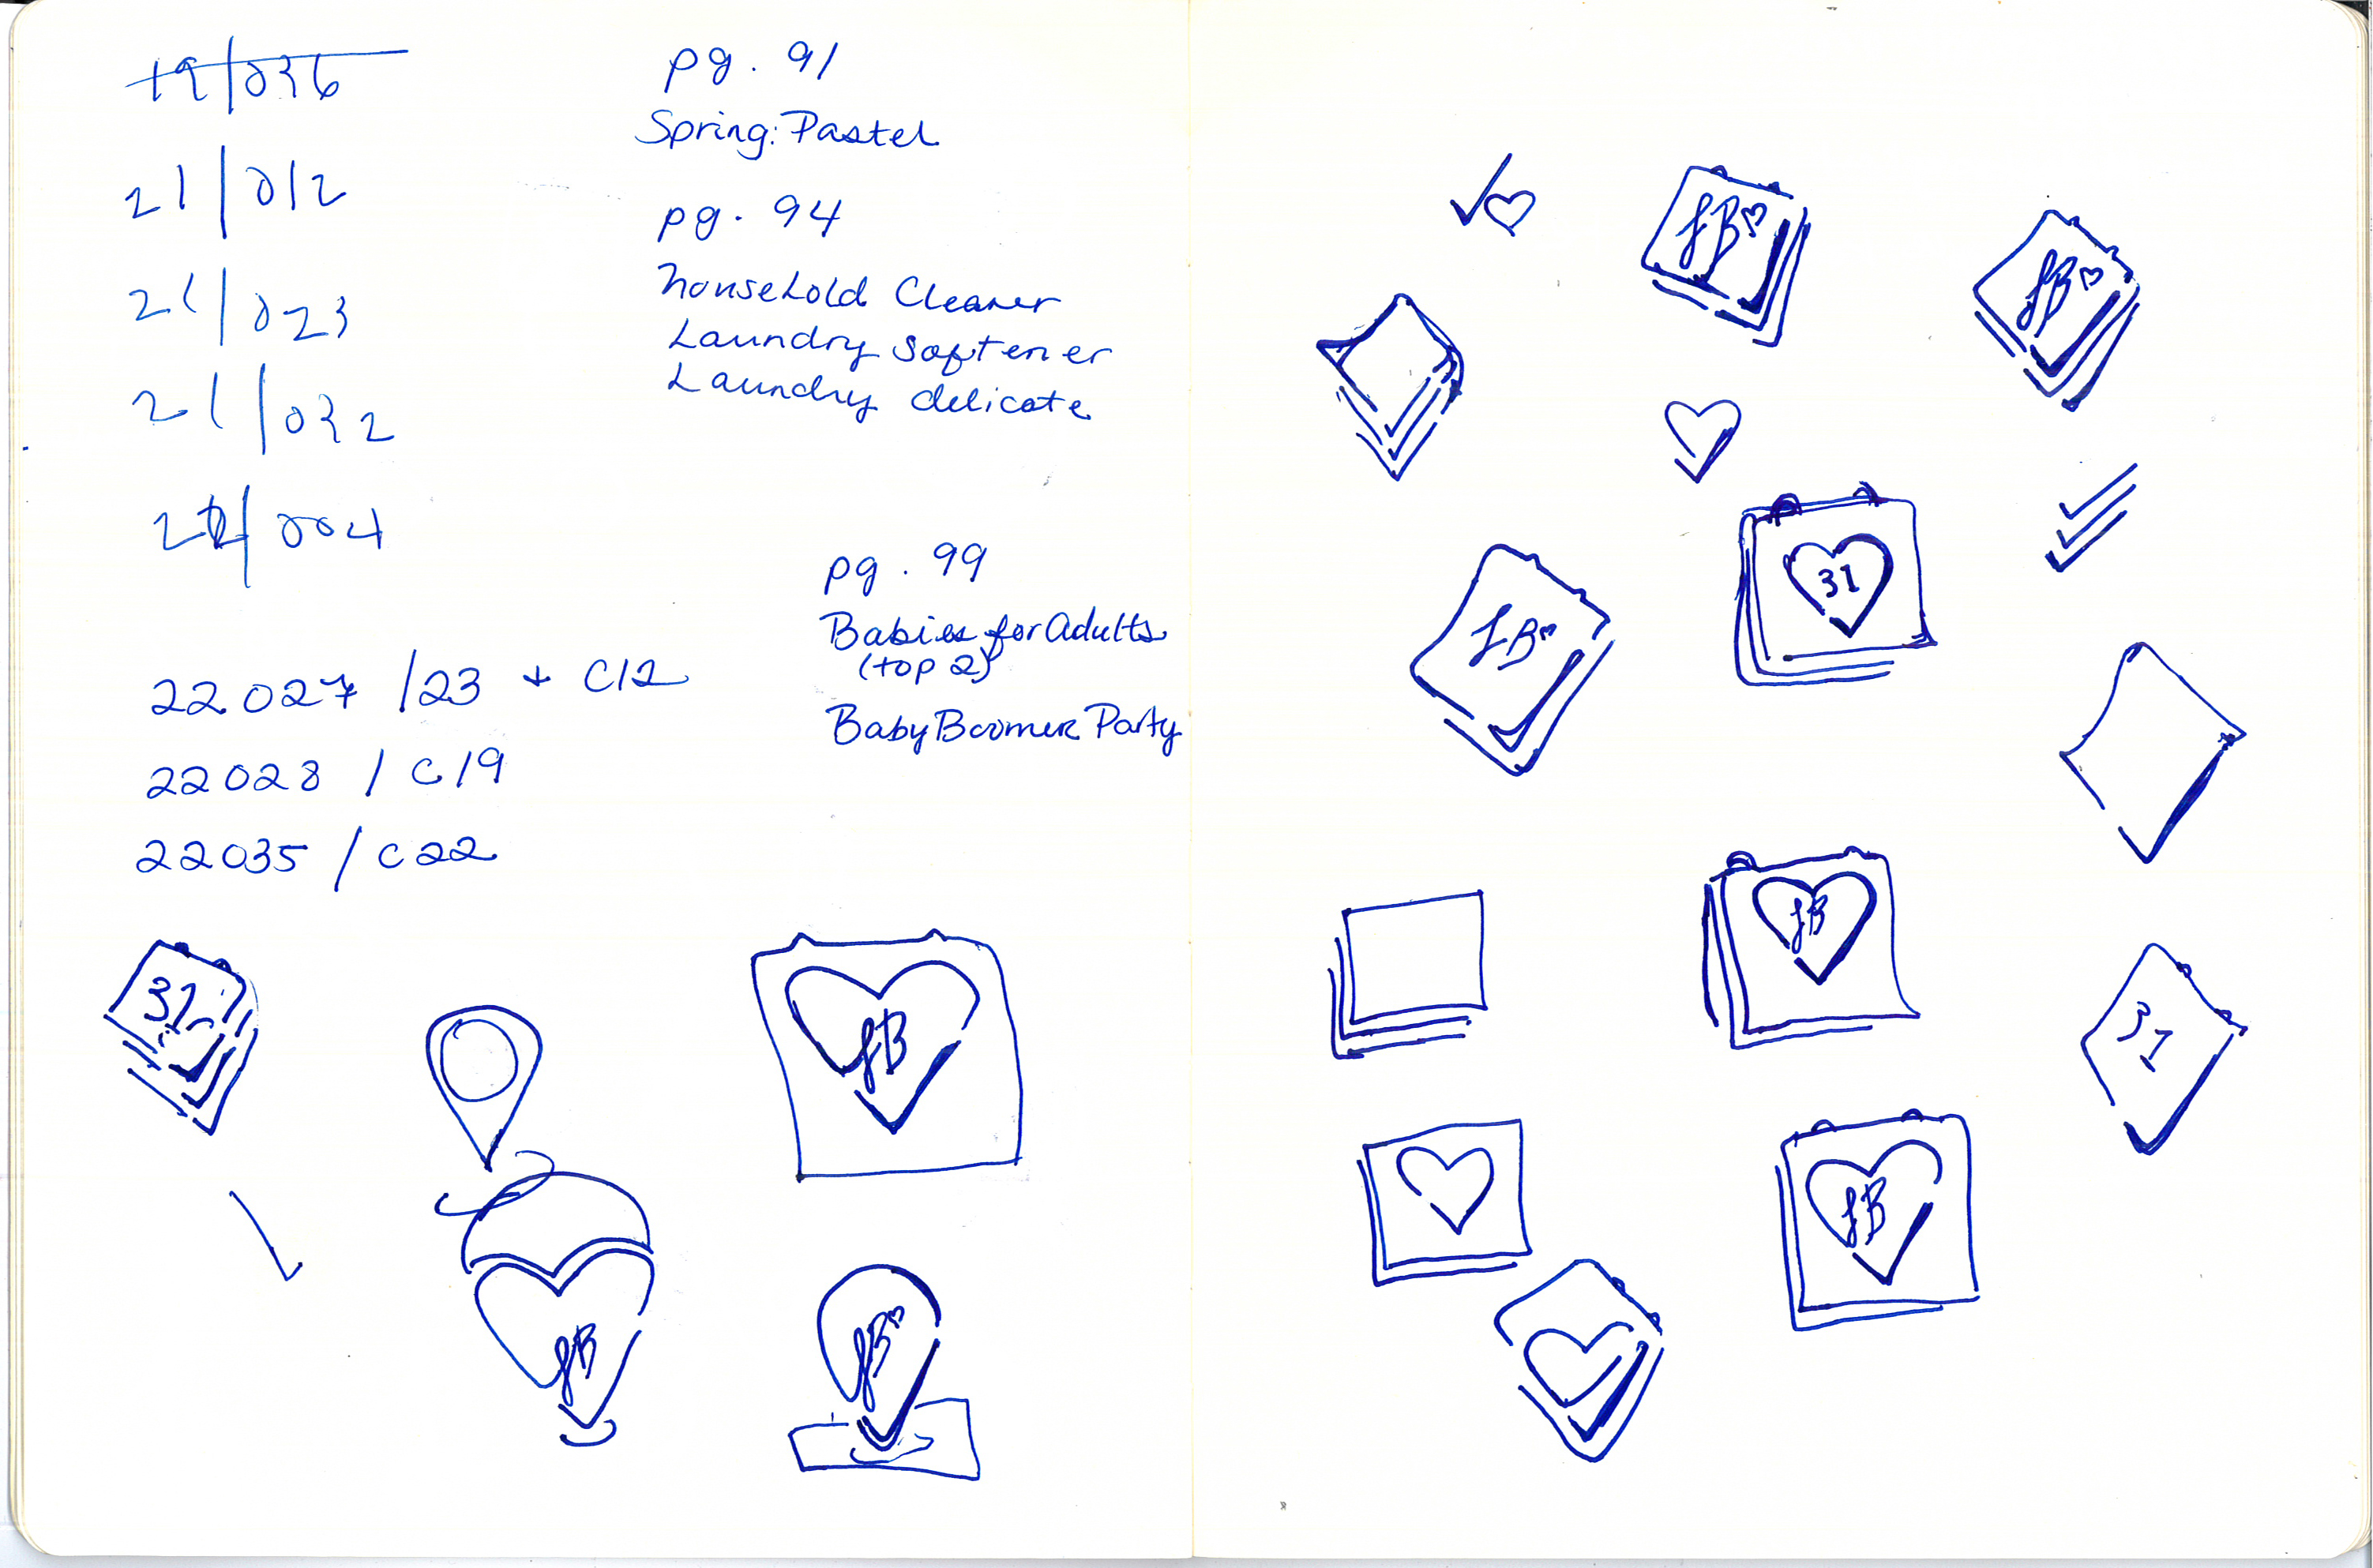 19/036
21/012
21/023
21/032
22/004
22027 /23 + C12
22028 / C19
22035 / C22
pg. 91
Spring: Pastel
pg. 94
household Cleaner
Laundry softener
Laundry delicate
pg. 99
Babies for Adults
(top 2)
Baby Boomer Party
31
JB
JB
JB
JB
JB
JB
31
JB
31
JB